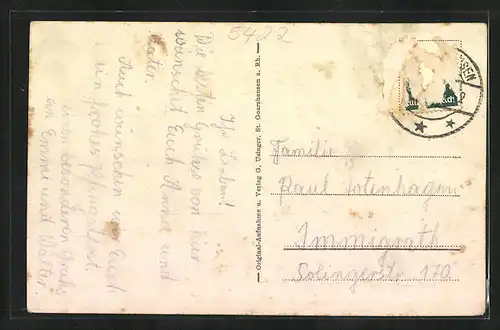 5422
Ihr Lieben!
Die besten Grüsse von hier
wünschet Euch Anna und
Vater.
Auch wünschen wir Euch
ein frohes Pfingstfest.
einen besonderen Gruss
von Emma und Walter.
Original-Aufnahme u. Verlag G. Usinger, St. Goarshausen a. Rh.
Familie
Paul Lotenhagen
Immigrath
Solingerstr. 170